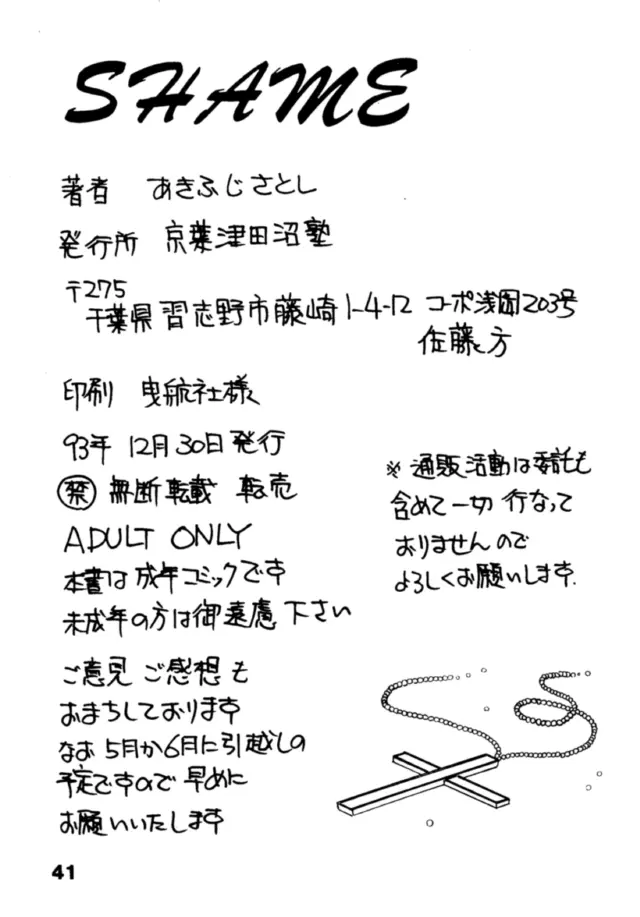 SHAME
著者 あきふじさとし
発行所 京葉津田沼塾
〒275
千葉県習志野市藤崎1-4-12 コーポ浅岡203号
佐藤方
印刷 曳航社様
93年 12月30日発行
禁 無断転載 転売
ADULT ONLY
本書は成年コミックです
未成年の方は御遠慮下さい
ご意見ご感想も
おまちしております
なお5月か6月に引越しの
予定ですので早めに
お願いいたします
※通販活動は委託も
含めて一切行なって
おりませんので
よろしくお願いします.
41